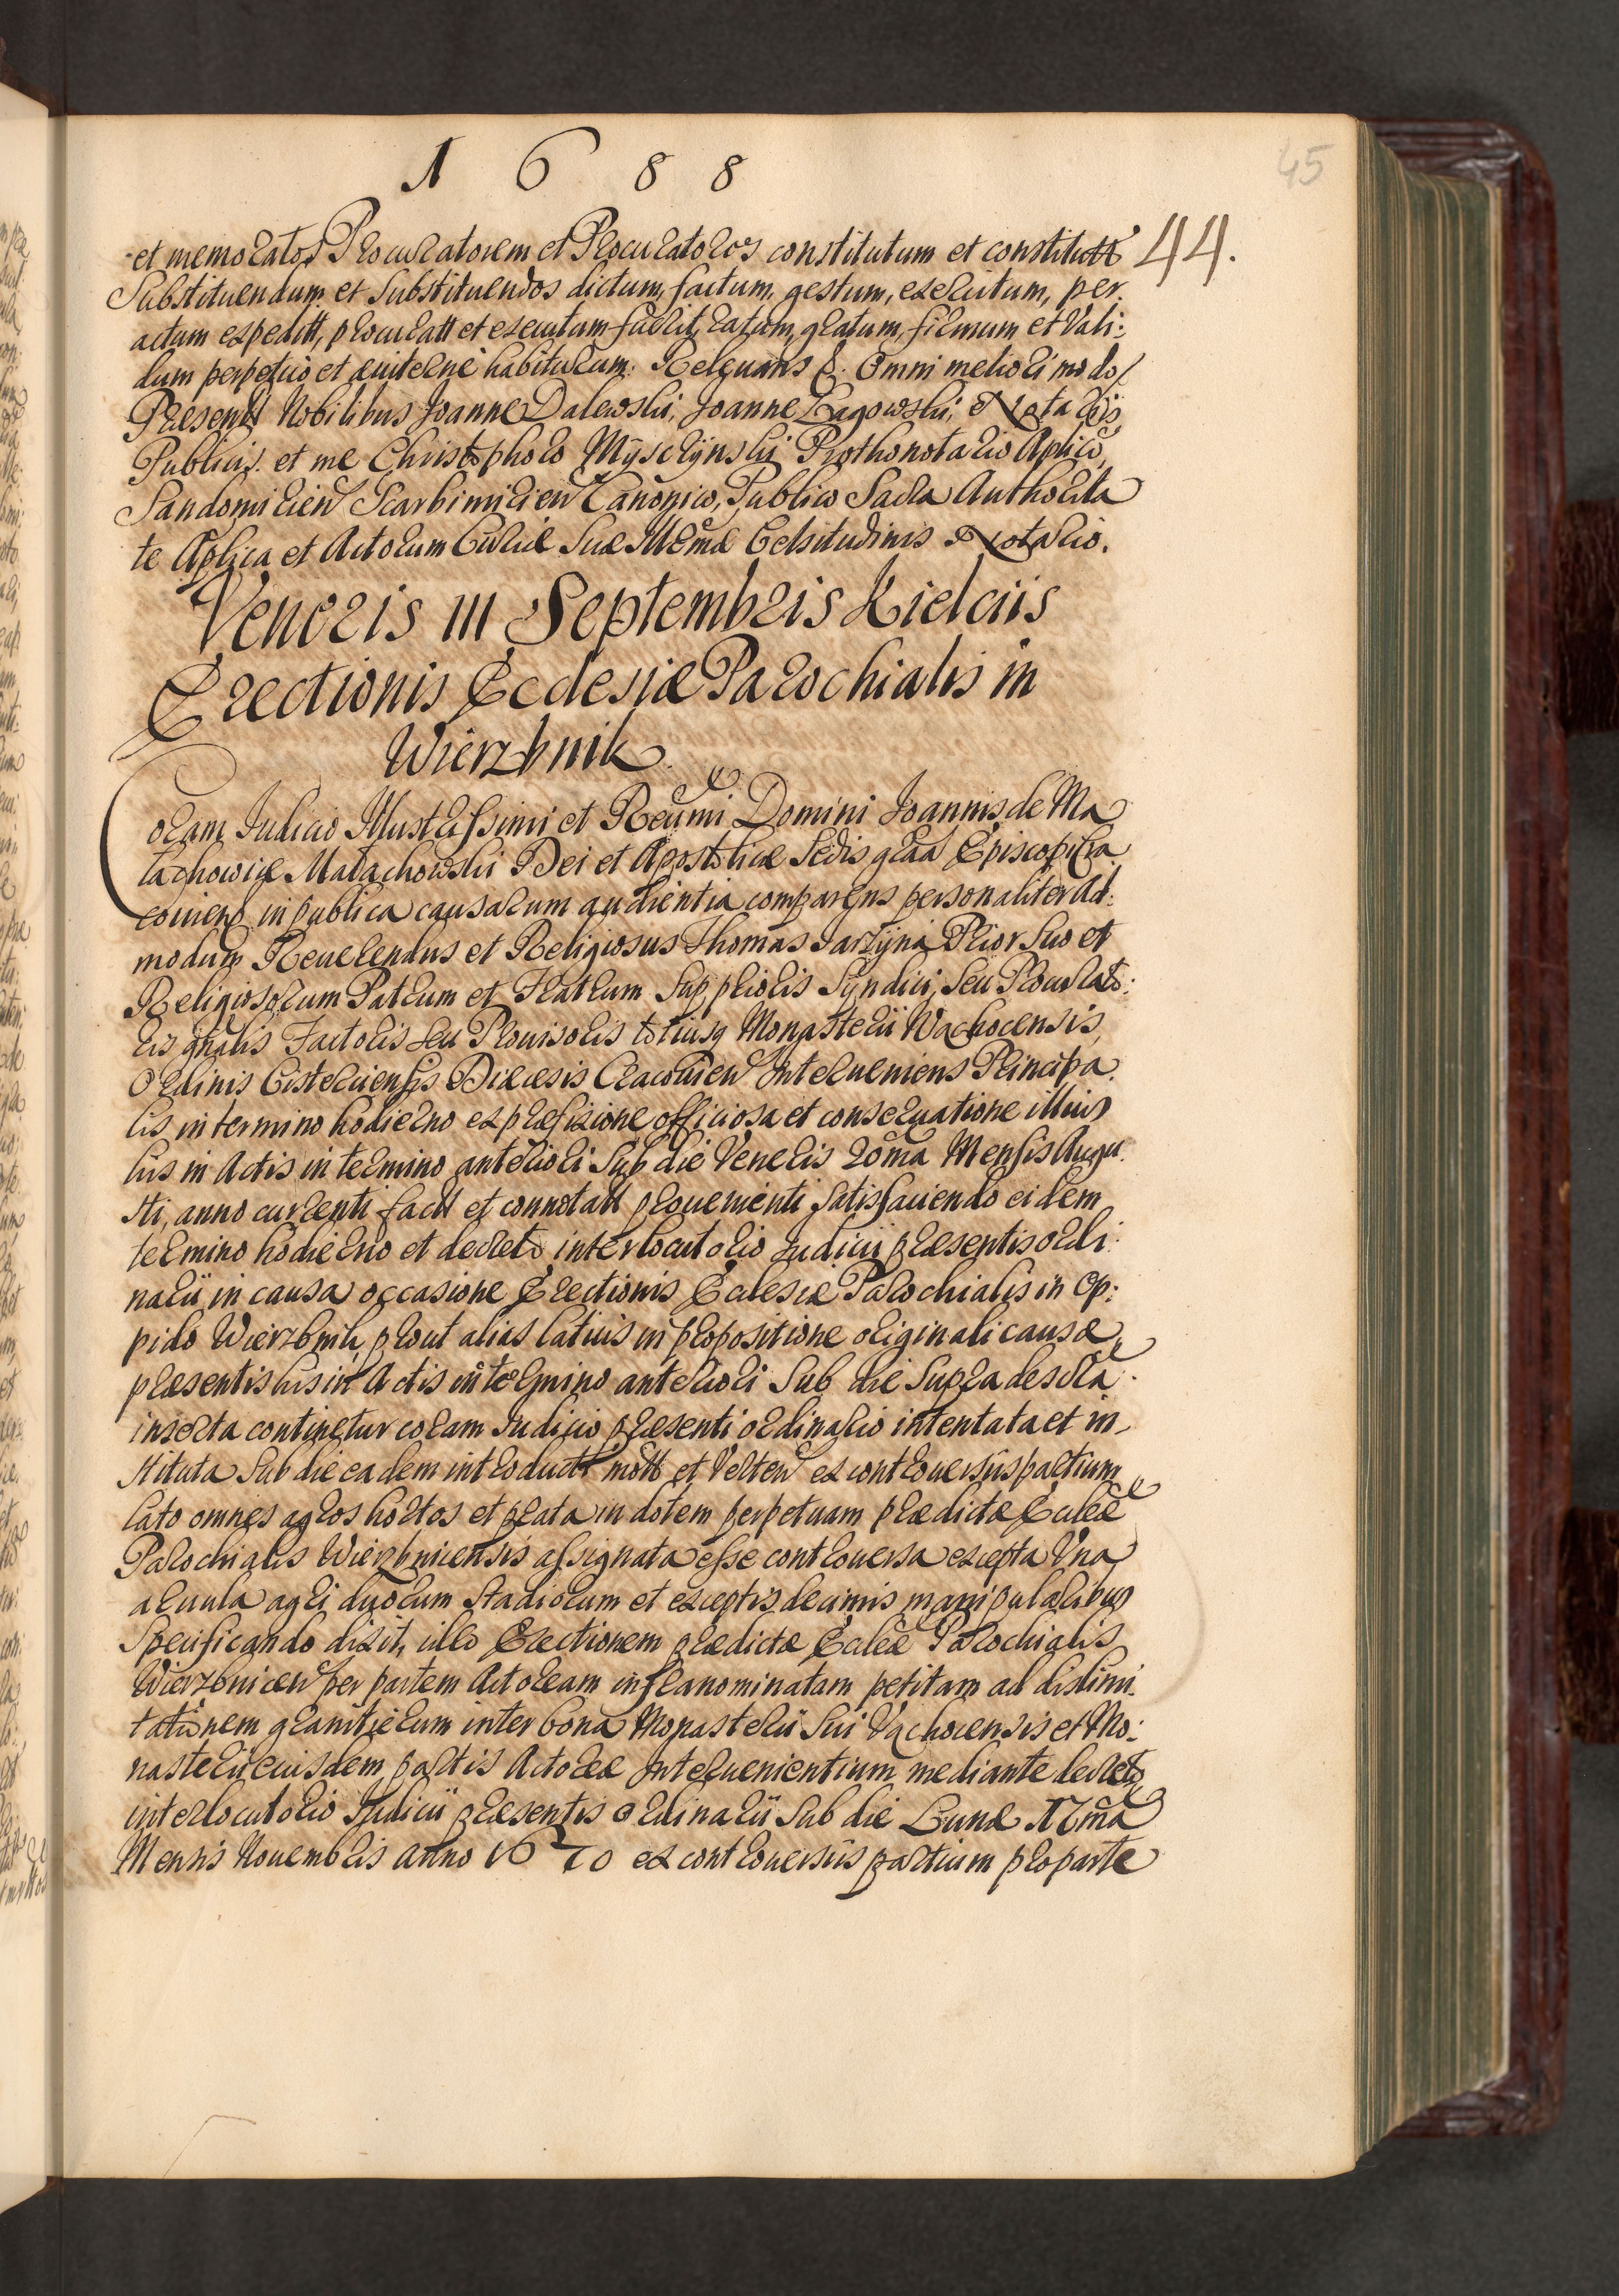 1688
45
44.
et memoratos Procuratorem et Procuratores constitutum et constitutt
Substituendum et Substituendos dictum, factum, gestum, exercitum, per:
actum expeditt, procuratt et executum fuerit, ratum, gratum, firmum et Vali:
dum perpetuo et æuiterne habiturum. Relquans &. Omni meliori modo/.
Præsentt Nobilibus Joanne Dalewski, Joanne Łagowski, Notariis
Publicis. et me Christophoro Mysclÿnski Prothonotario Aplico,
Sandomirien Scarbimirien Canonico, Publico Sacra Authorita
te Aplica et Actorum Curiæ Suæ Illmæ Celsitudinis Notario.
Veneris III Septembris Kielciis
Erectionis Ecclesiæ Parochialis in
Wierzbnik.
Coram Iudicio Illustrissimi et Reumi Domini Joannis de Ma
łachowice Małachowski Dei et Apostolicæ Sedis graã Episcopi Cra
couien in publica causarum audientia comparens personaliter Ad:
modum Reuerendus et Religiosus Thomas Jarzÿna Prior Suo et
Religiosorum Patrum et Fratrum Supprioris Sÿndici, Seu Procurato:
ris gñalis Factoris Seu Prouisoris totiusq Monasterii Wachocensis,
Ordinis Cisterciensis Diæcesis Cracouien Interueniens Principa:
lis in termino hodierno ex præfixione officiosa et conseruatione illius
lus in Actis in termino anteriori Sub die Veneris 20ma Mensis Augu:
sti, anno currenti factt et connotatt prouenienti Satisfaciendo eidem
termino hodierno et decreto interlocutorio Iudicii præsentis ordi:
narii in causa occasione Erectionis Ecclesiæ Parochialis in Op:
pido Wierzbnik, prout alias latius in propositione originali causæ
præsentis lus in Actis in termino anteriori Sub die Supra descrã
inserta continetur coram Iudicio præsenti ordinario intentata et in-
stituta Sub die eadem introductt mott et Verten ex controuersiis partium
lato omnes agros hortos et prata in dotem perpetuam prædictæ Eccleæ
Parochialis Wierzbnicensis assignata esse controuersa excepta Vna
aruula agri duorum Stadiorum et exceptis decimis manipularibus
Specificando dixit, illo Erectionem prædictæ Eccleæ Parochialis
Wierzbnicen per partem Actoream infranominatam petitam ad dislimi:
tationem granitierum inter bona Monasterii Sui Vachocensis et Mo:
nasterii eiusdem partis Actoreæ Interuenientium mediante decreto
interlocutorio Iudicii præsentis ordinarii Sub die Lunæ 17ma
Mensis Nouembris anno 1670 ex controuersiis partium pro parte